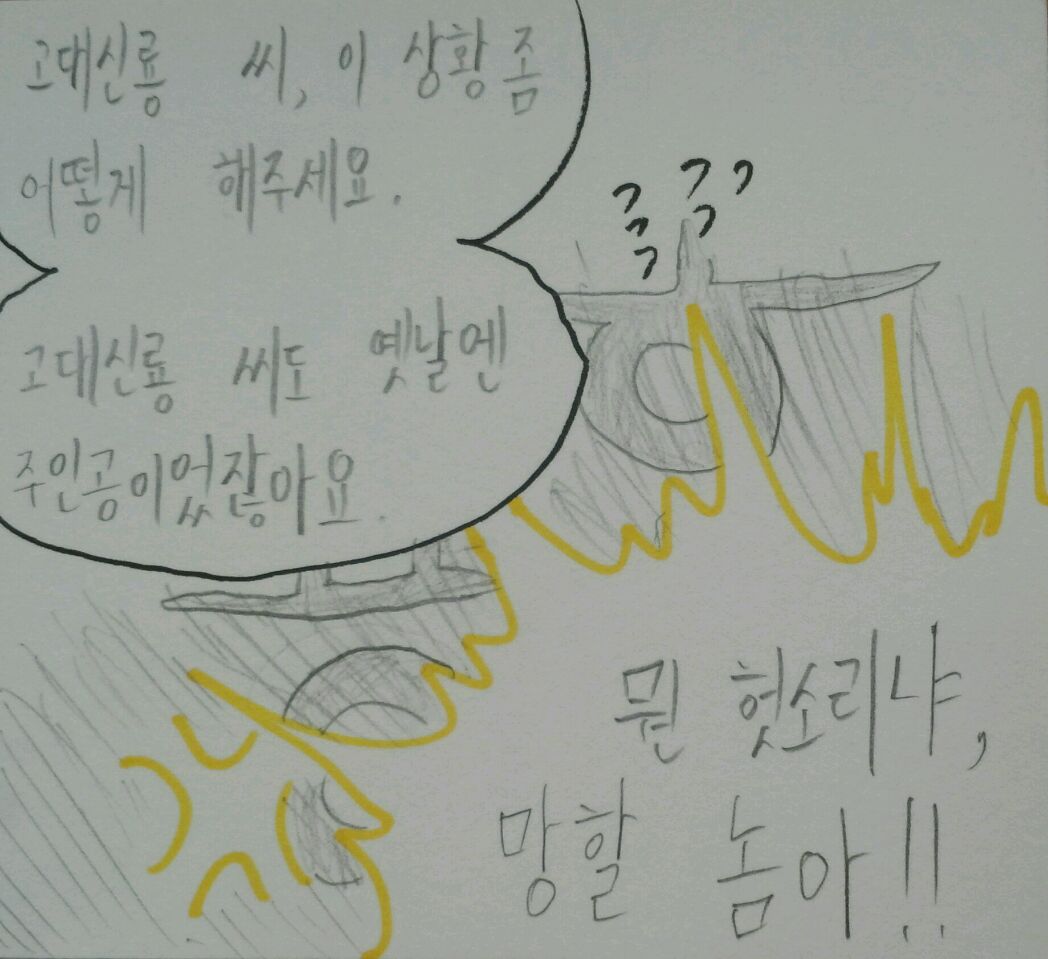 고대신룡 씨, 이 상황 좀
어떻게 해주세요.
고대신룡 씨도 옛날엔
주인공이었잖아요.
???
???
뭔 헛소리냐,
망할 놈아!!